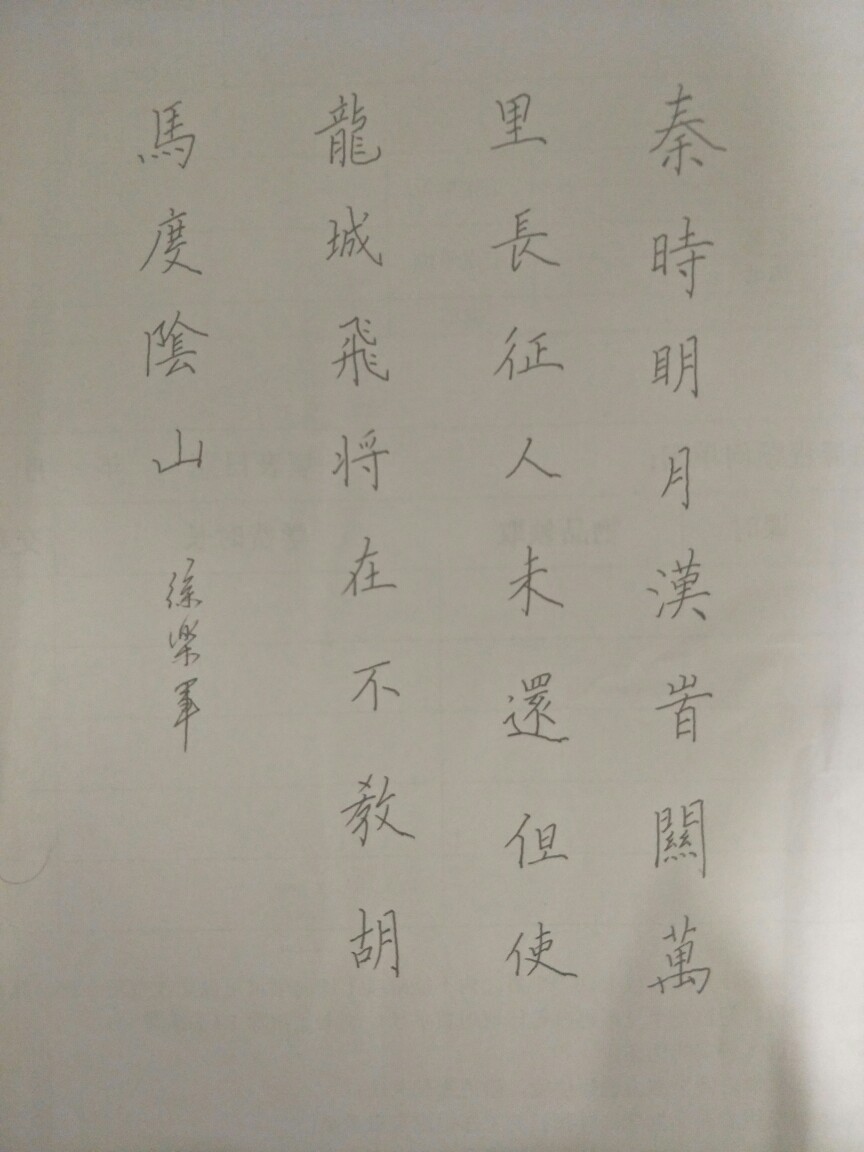 秦時明月漢旹關萬
里長征人未還但使
龍城飛将在不教胡
馬度陰山
徐樂軍